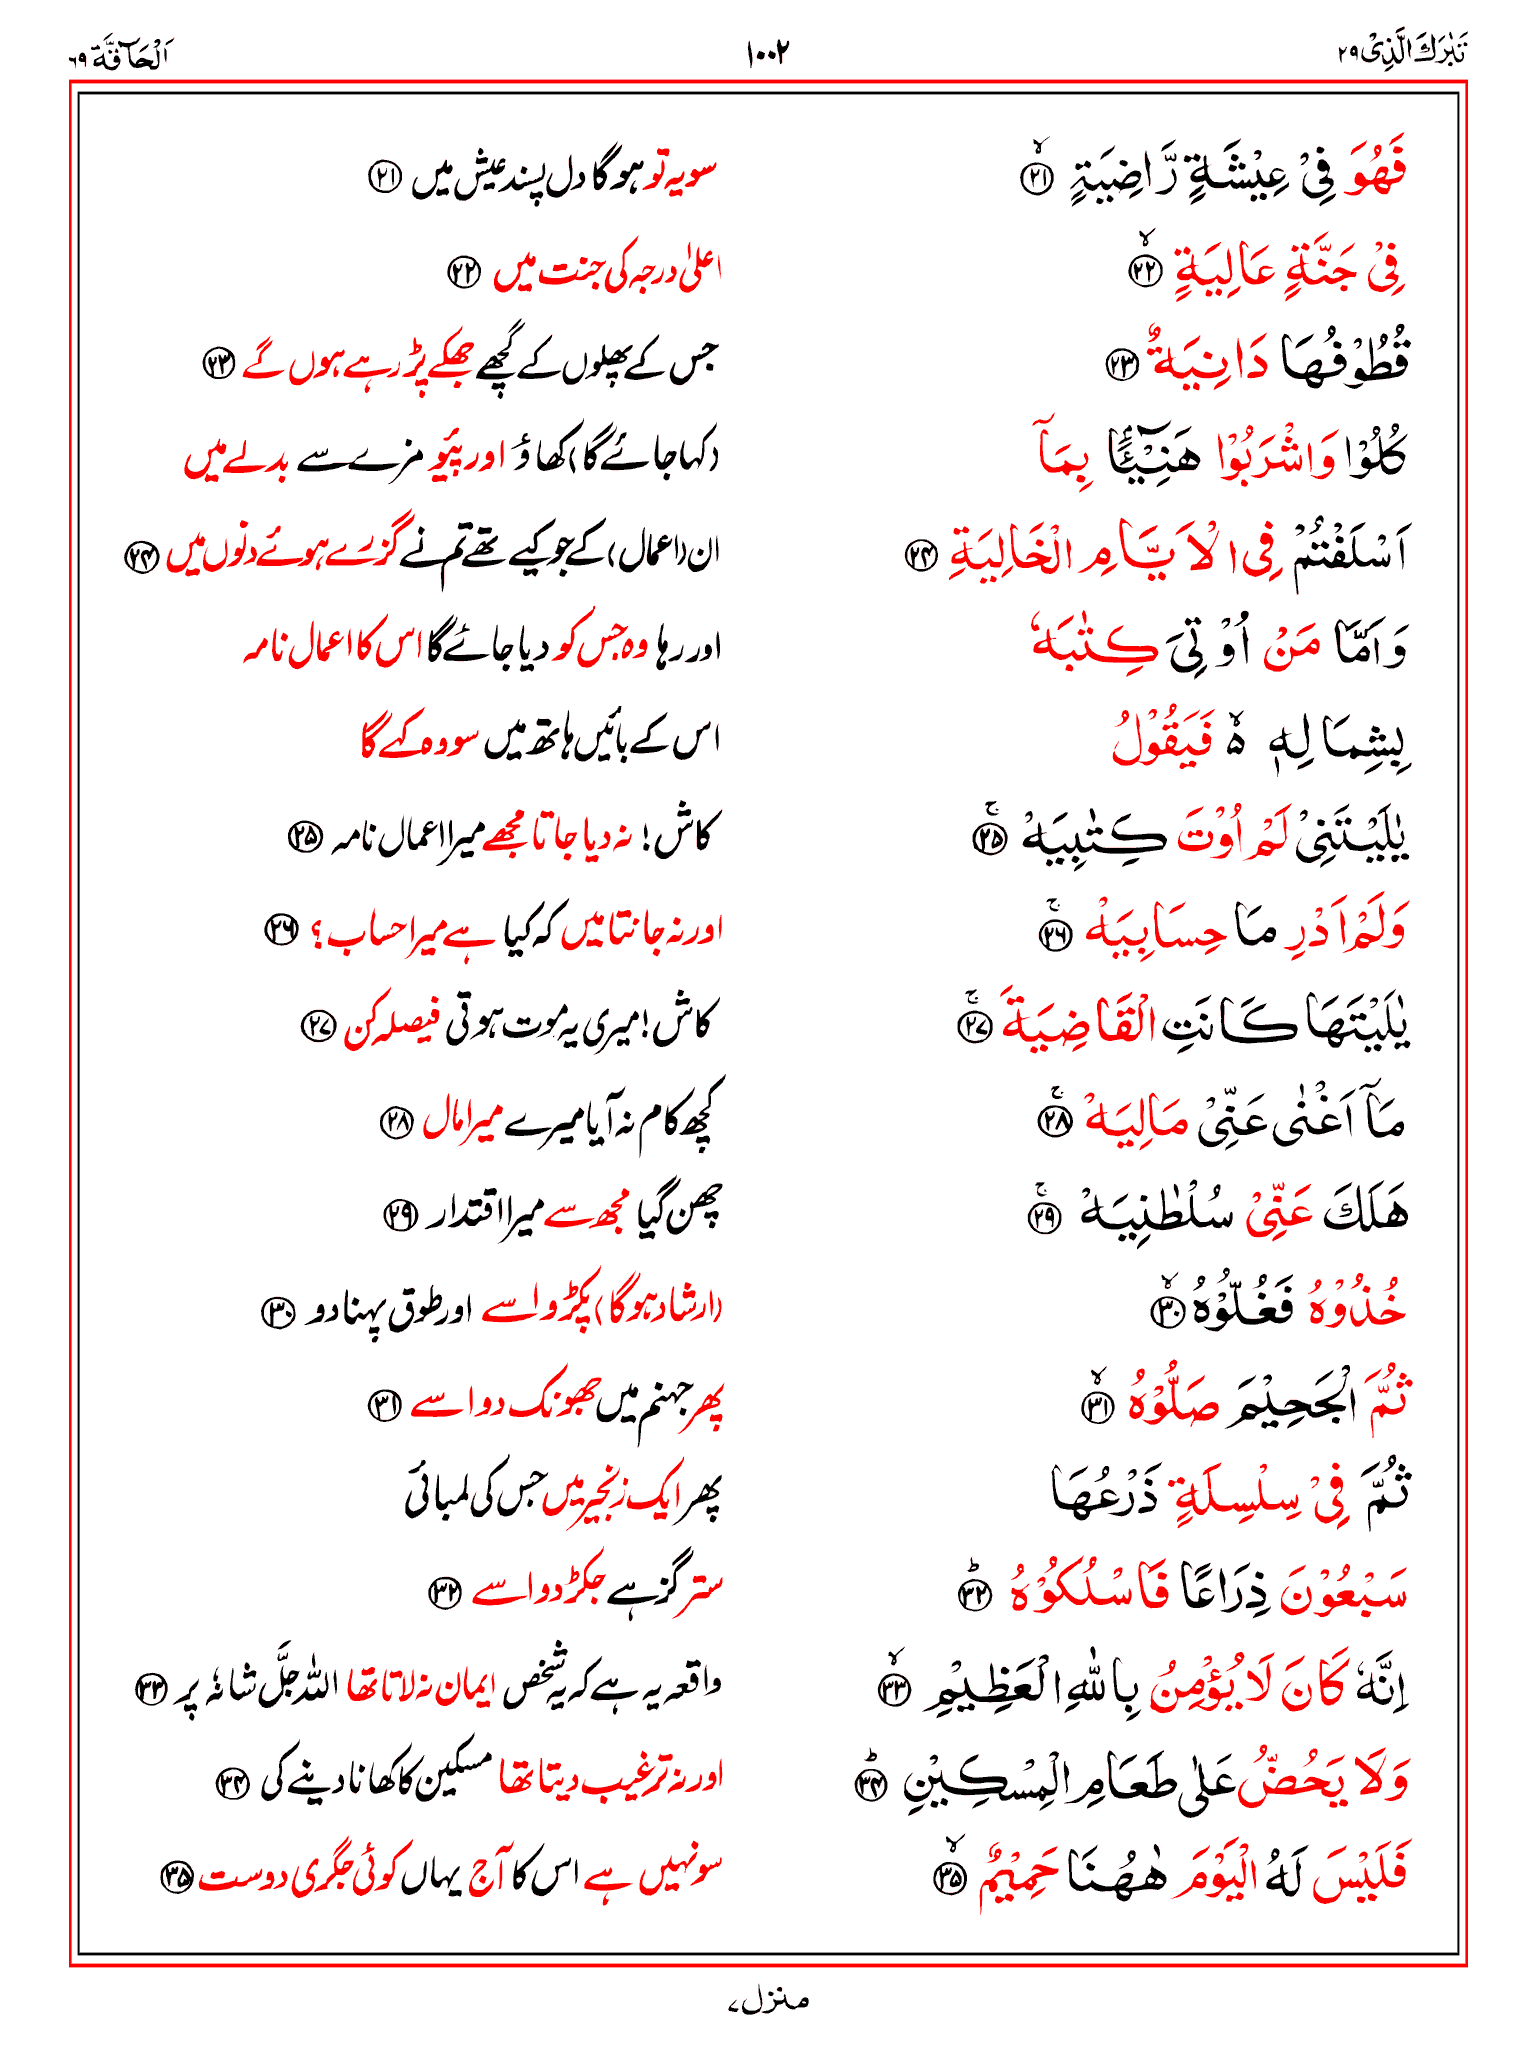 تَبٰرَكَ الَّذِیْ ۲۹ ۱۰۰۲ اَلْحَآقَّة ۶۹
فَهُوَ فِیْ عِیْشَةٍ رَّاضِیَةٍ ۙ﴿۲۱﴾ سو یہ تو ہوگا دل پسند عیش میں ﴿۲۱﴾
فِیْ جَنَّةٍ عَالِیَةٍ ۙ﴿۲۲﴾ اعلیٰ درجہ کی جنت میں ﴿۲۲﴾
قُطُوْفُهَا دَانِیَةٌ ﴿۲۳﴾ جس کے پھلوں کے گچھے جھکے پڑ رہے ہوں گے ﴿۲۳﴾
كُلُوْا وَاشْرَبُوْا هَنِیْٓـئًۢا بِمَاۤ (کہا جائے گا) کھاؤ اور پئیو مزے سے بدلے میں
اَسْلَفْتُمْ فِی الْاَیَّامِ الْخَالِیَةِ ﴿۲۴﴾ ان (اعمال) کے جو کیے تھے تم نے گزرے ہوئے دنوں میں ﴿۲۴﴾
وَاَمَّا مَنْ اُوْتِیَ كِتٰبَهٗ اور رہا وہ جس کو دیا جائے گا اس کا اعمال نامہ
بِشِمَالِهٖ ۙ۬ فَیَقُوْلُ اس کے بائیں ہاتھ میں سو وہ کہے گا
یٰلَیْتَنِیْ لَمْ اُوْتَ كِتٰبِیَهْ ۚ﴿۲۵﴾ کاش! نہ دیا جاتا مجھے میرا اعمال نامہ ﴿۲۵﴾
وَلَمْ اَدْرِ مَا حِسَابِیَهْ ۚ﴿۲۶﴾ اور نہ جانتا میں کہ کیا ہے میرا حساب؟ ﴿۲۶﴾
یٰلَیْتَهَا كَانَتِ الْقَاضِیَةَ ۚ﴿۲۷﴾ کاش! میری یہ موت ہوتی فیصلہ کن ﴿۲۷﴾
مَاۤ اَغْنٰی عَنِّیْ مَالِیَهْ ۚ﴿۲۸﴾ کچھ کام نہ آیا میرے میرا مال ﴿۲۸﴾
هَلَكَ عَنِّیْ سُلْطٰنِیَهْ ۚ﴿۲۹﴾ چھن گیا مجھ سے میرا اقتدار ﴿۲۹﴾
خُذُوْهُ فَغُلُّوْهُ ۙ﴿۳۰﴾ (ارشاد ہوگا) پکڑو اسے اور طوق پہنا دو ﴿۳۰﴾
ثُمَّ الْجَحِیْمَ صَلُّوْهُ ۙ﴿۳۱﴾ پھر جہنم میں جھونک دو اسے ﴿۳۱﴾
ثُمَّ فِیْ سِلْسِلَةٍ ذَرْعُهَا پھر ایک زنجیر میں جس کی لمبائی
سَبْعُوْنَ ذِرَاعًا فَاسْلُكُوْهُ ؕ﴿۳۲﴾ ستر گز ہے جکڑ دو اسے ﴿۳۲﴾
اِنَّهٗ كَانَ لَا یُؤْمِنُ بِاللّٰهِ الْعَظِیْمِ ۙ﴿۳۳﴾ واقعہ یہ ہے کہ یہ شخص ایمان نہ لاتا تھا اللہ جلَّ شانہٗ پر ﴿۳۳﴾
وَلَا یَحُضُّ عَلٰی طَعَامِ الْمِسْكِیْنِ ؕ﴿۳۴﴾ اور نہ ترغیب دیتا تھا مسکین کا کھانا دینے کی ﴿۳۴﴾
فَلَیْسَ لَهُ الْیَوْمَ هٰهُنَا حَمِیْمٌ ۙ﴿۳۵﴾ سو نہیں ہے اس کا آج یہاں کوئی جگری دوست ﴿۳۵﴾
منزل ۷